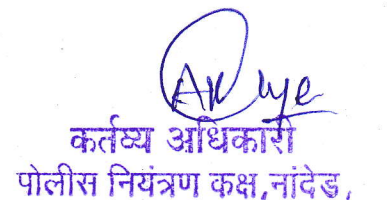 कर्तव्य अधिकारी
पोलीस नियंत्रण कक्ष,नांदेड,